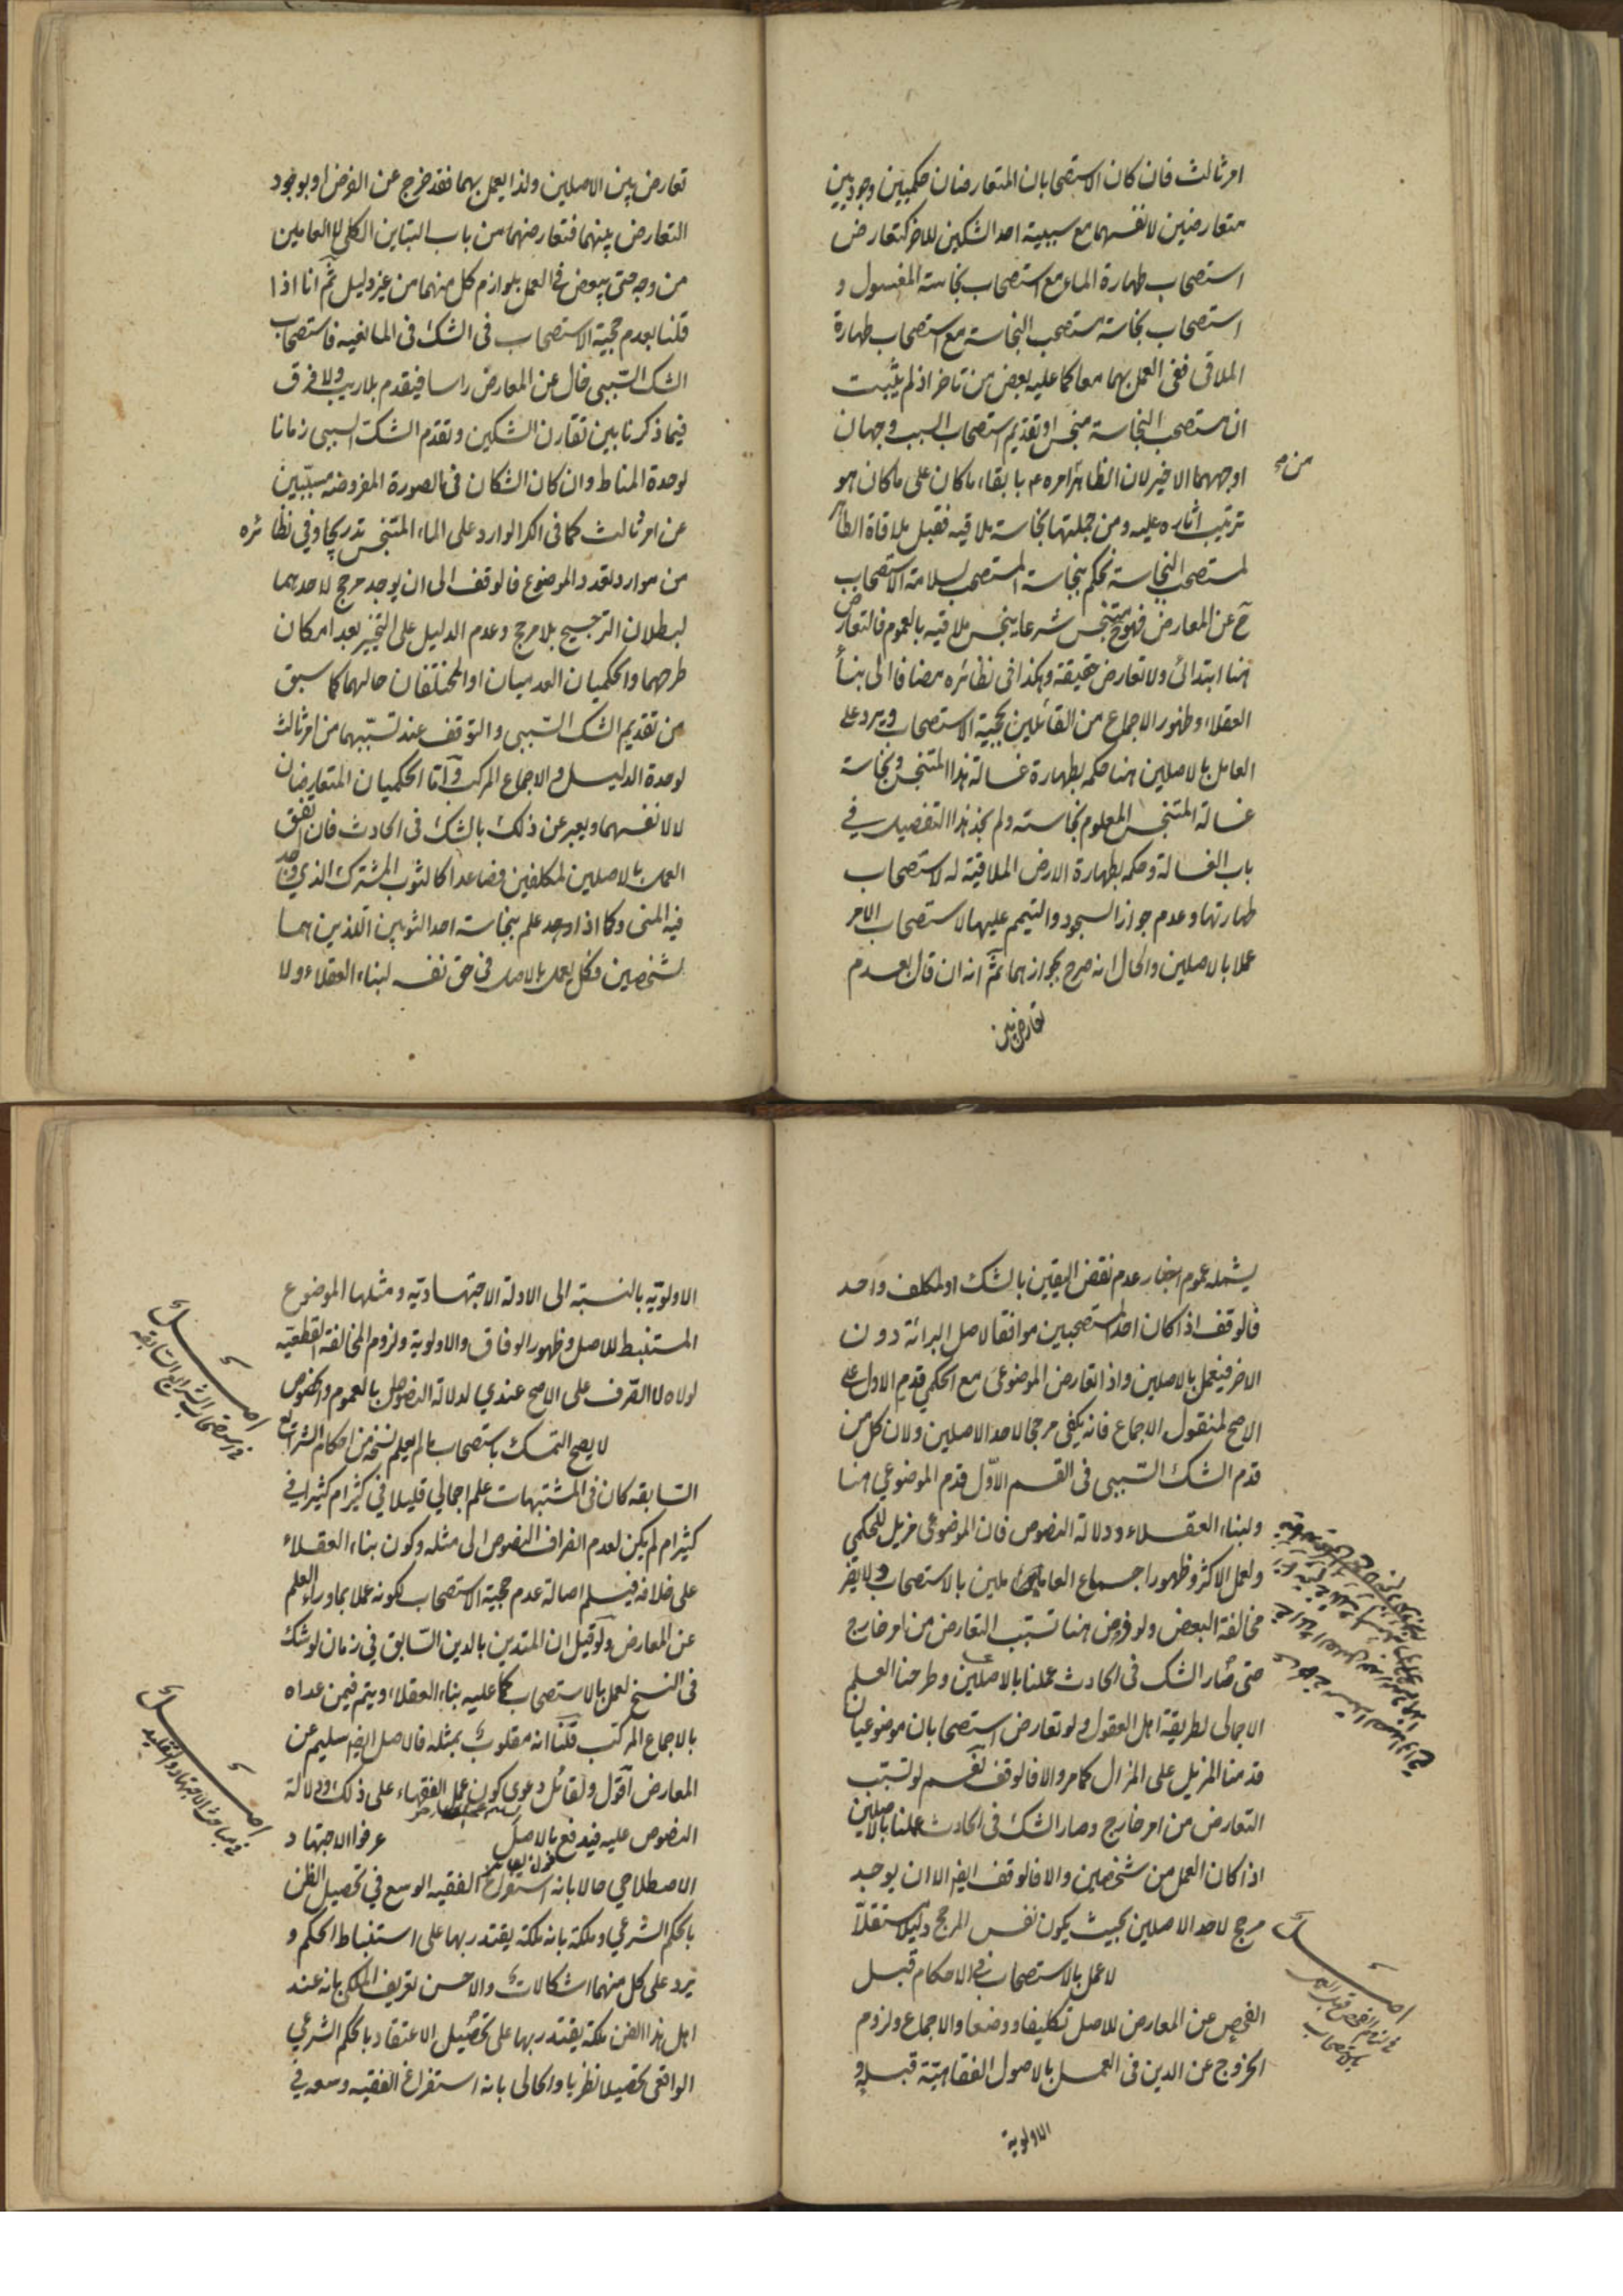 امر ثالث فان كان الاستصحابان المتعارضان حكميين وجوديين
متعارضين لانفسهما مع سببية احد الشكين للاخر كتعارض
استصحاب طهارة الماء مع استصحاب نجاسة المغسول و
استصحاب نجاسة مستصحب النجاسة مع استصحاب طهارة
الملاقى ففى العمل بهما معا كما عليه بعض من تاخر اذ لم يثبت
ان مستصحب النجاسة منجس او تقديم استصحاب السبب وجهان
اوجههما الاخير لان الظاهر امره م بابقاء ما كان على ما كان هو
من
ترتيب اثاره عليه ومن جملتها نجاسة ملاقيه فقبل ملاقاة الطاهر
لمستصحب النجاسة نحكم بنجاسة المستصحب لسلامة الاستصحاب
ح عن المعارض فهو ح متنجس شرعا ينجس ملاقيه بالعموم فالتعارض
هنا ابتدائى ولا تعارض حقيقة وهكذا فى نظائره مضافا الى بناء
العقلاء وظهور الاجماع من القائلين بحجية الاستصحاب ويرد على
العامل بالاصلين هنا حكمه بطهارة غسالة هذا المتنجس ونجاسة
غسالة المتنجس المعلوم نجاسته ولم نجد هذا التفصيل في
باب الغسالة وحكمه بطهارة الارض الملاقية له لاستصحاب
طهارتها وعدم جواز السجود والتيمم عليها لاستصحاب الامر
عملا بالاصلين والحال انه صرح بجوازهما ثم انه ان قال بعدم
تعارض بين
تعارض بين الاصلين ولذا يعمل بهما فقد خرج عن الفرض او بوجود
التعارض بينهما فتعارضهما من باب التباين الكلى لا العامين
من وجه حتى يبعض فى العمل بلوازم كل منهما من غير دليل ثم انا اذا
قلنا بعدم حجية الاستصحاب فى الشك فى المانعيه فاستصحاب
الشك السببى خال عن المعارض راسا فيقدم بلا ريب ولا فرق
فيما ذكرنا بين تقارن الشكين وتقدم الشك السببى زمانا
لوحدة المناط وان كان الشكان فى الصورة المفروضه مسببين
عن امر ثالث كما فى الكر الوارد على الماء المتنجس تدريجا وفي نظائره
من موارد تعدد الموضوع فالوقف الى ان يوجد مرجح لاحدهما
لبطلان الترجيح بلا مرجح وعدم الدليل على التخيير بعد امكان
طرحهما والحكميان العدميان او المختلفان حالهما كما سبق
من تقديم الشك السببى والتوقف عند تسببهما من امر ثالث
لوحدة الدليل والاجماع المركب واما الحكميان المتعارضان
لا لانفسهما ويعبر عن ذلك بالشك فى الحادث فان اتفق
العمل بالاصلين لمكلفين فصاعدا كالثوب المشترك الذي وجد
فيه المنى وكما اذا وجد علم بنجاسة احد الثوبين اللذين هما
لشخصين فكل يعمل بالاصل فى حق نفسه لبناء العقلاء ولا
يشمله عموم اخبار عدم نقض اليقين بالشك او لمكلف واحد
فالوقف اذا كان احد المستصحبين موافقا لاصل البرائة دون
الاخر فيعمل بالاصلين واذا تعارض الموضوعى مع الحكمي قدم الاول على
الاصح لمنقول الاجماع فانه يكفى مرجحا لاحد الاصلين ولان كل من
قدم الشك السببى فى القسم الاول قدم الموضوعي هنا
ولبناء العقلاء ودلالة النصوص فان الموضوعى مزيل للحكمي
ولعمل الاكثر وظهور اجماع العاملين بالاستصحاب ولا يضر
مخالفة البعض ولو فرض هنا تسبب التعارض من امر خارج
حتى صار الشك فى الحادث عملنا بالاصلين وطرحنا العلم
الاجمالى لطريقة اهل العقول ولو تعارض استصحابان موضوعيان
قدمنا المزيل على المزال كما مر والا فالوقف نعم لو تسبب
التعارض من امر خارج وصار الشك فى الحادث عملنا بالاصلين
اذا كان العمل من شخصين والا فالوقف ايضا الا ان يوجد
مرجح لاحد الاصلين بحيث يكون نفس المرجح دليلا مستقلا
لا عمل بالاستصحاب فى الاحكام قبل
الفحص عن المعارض للاصل تكليفا ووضعا والاجماع ولزوم
الخروج عن الدين فى العمل بالاصول الفقاهتية قبله و
الاولوية
اصل
الاولوية بالنسبة الى الادلة الاجتهادية ومثلها الموضوع
المستنبط للاصل وظهور الوفاق والاولوية ولزوم المخالفة القطعية
لولاه لا الصرف على الاصح عندي لدلالة النصوص بالعموم والخصوص
لا يصح التمسك باستصحاب ما لم يعلم نسخه من احكام الشرائع
السابقه كان فى المشتبهات علم اجمالي قليلا في كثير ام كثيرا في
كثير ام لم يكن لعدم انصراف النصوص الى مثله وكون بناء العقلاء
على خلافه فيسلم اصالة عدم حجية الاستصحاب لكونه عملا بما وراء العلم
عن المعارض ولو قيل ان المتدين بالدين السابق في زمان لو شك
فى النسخ لعمل بالاستصحاب كما عليه بناء العقلاء ويتم فيمن عداه
بالاجماع المركب قلنا انه مقلوب بمثله فالاصل ايضا سليم عن
المعارض اقول ولقائل دعوى كون عمل الفقهاء على ذلك ودلالة
النصوص عليه فيدفع بالاصل عرفوا الاجتهاد
الاصطلاحي حالا بانه استفراغ الفقيه الوسع في تحصيل الظن
بالحكم الشرعي وملكة بانه ملكة يقتدر بها على استنباط الحكم و
يرد على كل منهما اشكالات والاحسن تعريف الملكى بانه عند
اهل هذا الفن ملكة يقتدر بها على تحصيل الاعتقاد بالحكم الشرعي
الواقعى تحصيلا نظريا والحالى بانه استفراغ الفقيه وسعه في
اصل
فى استصحاب الشرائع السابقة
اصل
فى مباحث الاجتهاد والتقليد